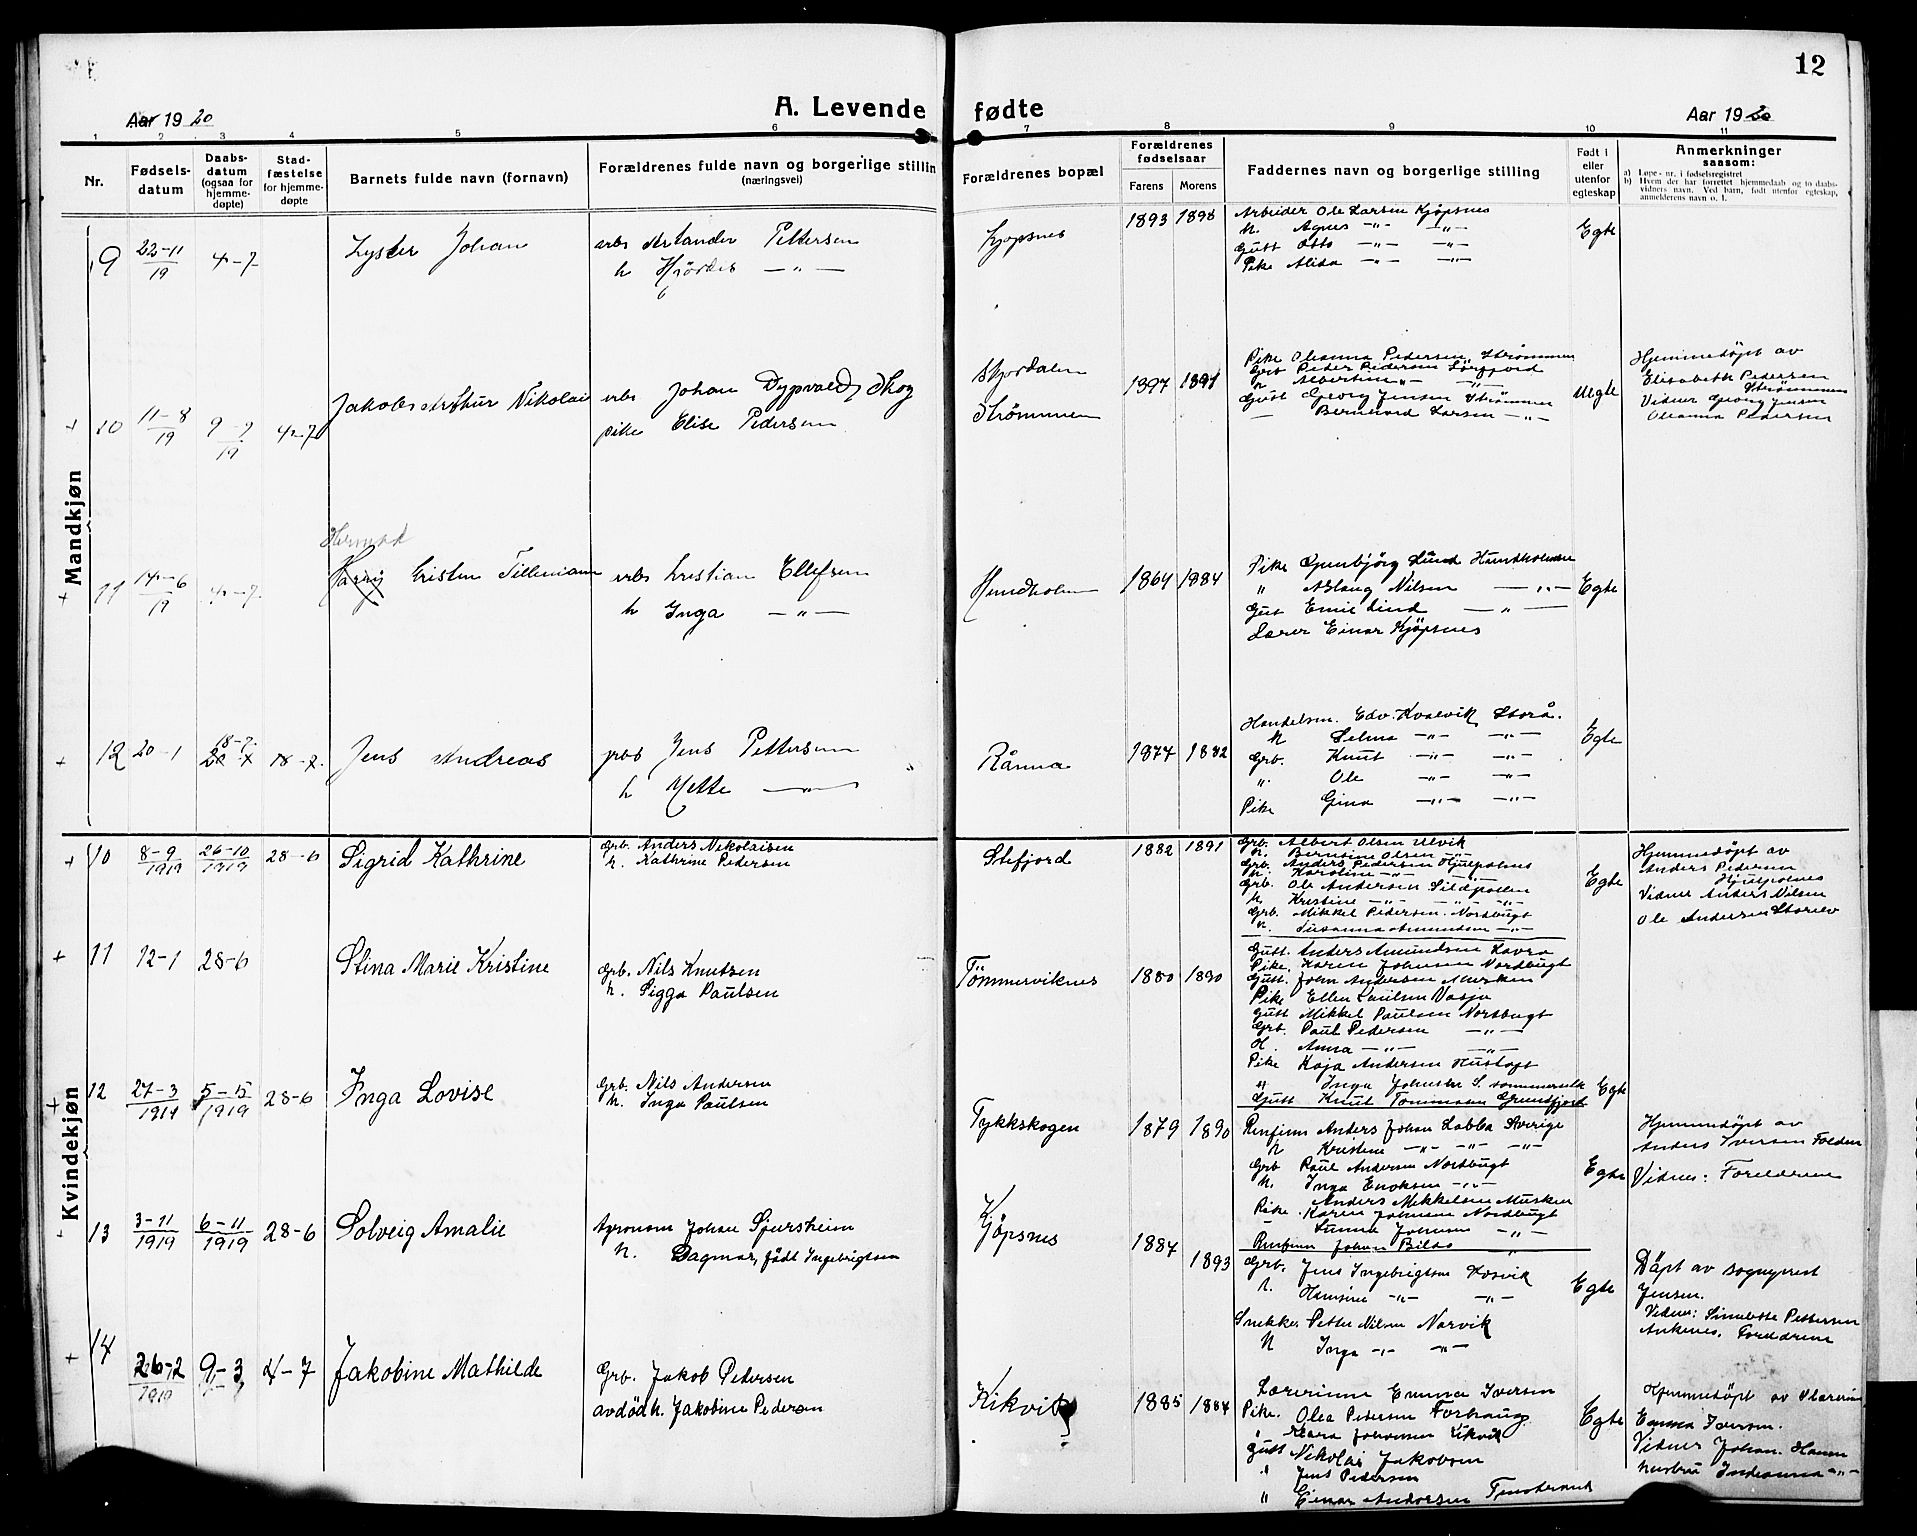 12
Aar 1920
A. Levende fødte
Aar 1920
1 2 3 4 5 6 7 8 9 10 11
Nr.
Fødsels-
datum
Daabs-
datum
(ogsaa for
hjemme-
døpte)
Stad-
fæstelse
for hjemme-
døpte
Barnets fulde navn (fornavn)
Forældrenes fulde navn og borgerlige stillin
(næringsvei)
Forældrenes bopæl
Forældrenes
fødselsaar
Farens Morens
Faddernes navn og borgerlige stilling
Født i
eller
utenfor
egteskap
Anmerkninger
saasom:
a) Løpe-nr. i fødselsregistret
b) Hvem der har forrettet hjemmedaab og to daabs-
vidners navn. Ved barn, født utenfor egteskap,
anmelderens navn o. l.
Mandkjøn
9 22-11/19 4-7 Lyster Johan
arb. Arlander Pettersen
h Hjørdis -"-
Kjøpsnes 1893 1898
Arbeider Ole Larsen Kjøpsnes
h. Agnes -"- -"-
Gutt Otto -"- -"-
Pike Alida -"- -"-
Egte
+ 10 11-8/19 9-9/19 4-7 Jakob Arthur Nikolai
arb Johan Dypvold, Skog
pike Elise Pedersen
Skjordalen
Strømmen
1897 1891
Pike Oleanna Pedersen, Strømmen
Grb Peder Pedersen Sørfjord
h Albertine -"- -"-
Gutt Georg Jensen Strømmen
— Bernhard Larsen -"-
Uegte
Hjemmedøpt av
Elisabeth Pedersen
Strømmen
Vidner Georg Jensen
Oleanna Pedersen
+ 11 14-6/19 4-7
Harry Cristen Tillemann
arb Kristian Ellefsen
h Inga -"-
Hundholmen 1864 1884
Pike Gunbjørg Lund Hundholmen
" Aslaug Nilsen -"-
Gut Emil Lind -"-
Lærer Einar Kjøpsnes
Egte
+ 12 20-1 18-7 18-7. Jens Andreas
grb Jens Pettersen
h Mette -"-
Rånna 1874 1882
Handelsm. Edv. Kvalvik Storå.
h Selma -"- -"-
Grb. Knut -"- -"-
". Ole -"- -"-
Pike Gina -"- -"-
Egte
Kvindekjøn
+ 10 8-9/1919 26-10/1919 28-6 Sigrid Kathrine
Grb. Anders Nikolaisen
h. Kathrine Pedersen
Stefjord 1882 1891
Grb. Albert Olsen Ulvik
h. Berntine Olsen -"-
Grb. Anders Pedersen Hjulpolnes
h. Karoline -"- -"-
Grb. Ole Andersen Sildpollen
h. Kristine -"- -"-
Grb. Mikkel Pedersen Nordbugt
h. Susanna Amundsen -"-
Egte
Hjemmedøpt av
Anders Pedersen
Hjulpolnes
Vidner Anders Nilsen
Ole Andersen
+ 11 12-1 28-6 Stina Marie Kristine
Grb. Nils Knutsen
h. Sigga Paulsen
Tømmerviknes 1880 1890
Gutt. Anders Amundsen Lavra
Pike. Karen Johnsen Nordbugt
Gutt. John Andersen Musken
Pike Ellen Paulsen Vasja
Gutt Mikkel Paulsen Nordbugt
Grb. Paul Pedersen -"-
H. Anna -"- -"-
Pike Kaja Andersen
" Inga Johnsen
Gutt Knut Tommasen Grundfjord
Egte
+ 12 27-3/1919 5-15/1919 28-6 Inga Lovise
Grb. Nils Andersen
h. Inga Paulsen
Tykkskogen 1879 1890
Renfinn Anders Johan Labba Sverige
h Kristine -"- -"- -"-
Grb Paul Andersen Nordbugt
h. Inga Enoksen -"-
Anders Mikkelsen Musken
Pike. Karen Johnsen Nordbugt
Johnsen -"-
Renfinn Johan
Egte
Hjemmedøpt av
Anders Iversen Folden
Vidnes: Forældrene
13 3-11/1919 6-11/1919 28-6 Solveig Amalie
Agronom Johan Sjursheim
h. Dagmar, født Ingebrigtsen
Kjøpsnes 1884 1893
Grb. Jens Ingebrigtsen Kosvik
h. Hansine -"- -"-
Snekker Petter Nilsen Narvik
h Inga -"- -"-
Egte
Døpt av sogneprest
Jensen.
Vidner: Pettersen
Ankenes. Forældrene
+ 14 26-2/1919 9-3 4-7 Jakobine Mathilde
Grb. Jakob Petersen
avdød h. Jakobine Pedersen
Kikvik 1885 1884
Lærerinne Emma Iversen
Pike. Olea Petersen Forhaug
" Klara Johansen Kikvik
Gutt Nikolai Jakobsen
" Jens Pedersen
" Einar Andersen
Egte
Hjemmedøpt av
Emma Iversen.
Vidner Johan Hansen
hustru Indianna -"-